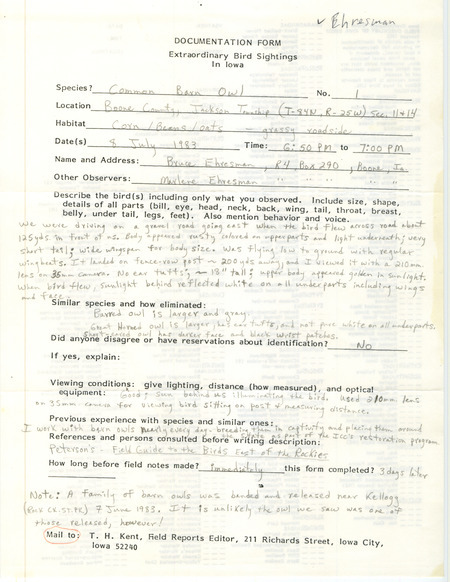 ✓ Ehresman
DOCUMENTATION FORM
Extraordinary Bird Sightings
In Iowa
Species? Common Barn Owl No. 1
Location Boone County, Jackson Township (T-84N, R-25W) Sec. 11 & 14
Habitat Corn/Beans/oats - grassy roadside
Date(s) 8 July 1983 Time: 6:50 PM to 7:00 PM
Name and Address: Bruce Ehresman, R4 Box 290, Boone, Ia.
Other Observers: Marlene Ehresman " " " "
Describe the bird(s) including only what you observed. Include size, shape,
details of all parts (bill, eye, head, neck, back, wing, tail, throat, breast,
belly, under tail, legs, feet). Also mention behavior and voice.
We were driving on a gravel road going east when the bird flew across road about
125yds in front of us. Body appeared rusty colored on upperparts and light underneath; very
short tail; wide wingspan for body size. Was flying low to ground with regular
wingbeats. It landed on fence-row post ~ 200yds away, and I viewed it with a 210mm
lens on 35mm camera. No ear tufts; ~ 18" tall; upper body appeared golden in sunlight.
When bird flew, sunlight behind reflected white on all underparts including wings
and face.
Similar species and how eliminated:
Barred owl is larger and gray.
Great Horned owl is larger, has ear tufts, and not pure white on all underparts.
Short-eared owl has darker face and black wrist patches.
Did anyone disagree or have reservations about identification? No
If yes, explain:
Viewing conditions: give lighting, distance (how measured), and optical
equipment: Good; sun behind us illuminating the bird. Used 210mm lens
on 35mm camera for viewing bird sitting on post & measuring distance.
Previous experience with species and similar ones:
I work with barn owls nearly every day - breeding them in captivity and placing them around
the state as part of the ICC's restoration program
References and persons consulted before writing description:
Peterson's - Field Guide to the Birds East of the Rockies
How long before field notes made? immediately this form completed? 3 days later
Note: A family of barn owls was banded and released near Kellogg
(Rock Ck. St. Pk) 7 June 1983. It is unlikely the owl we saw was one of
those released, however!
Mail to: T. H. Kent, Field Reports Editor, 211 Richards Street, Iowa City,
Iowa 52240